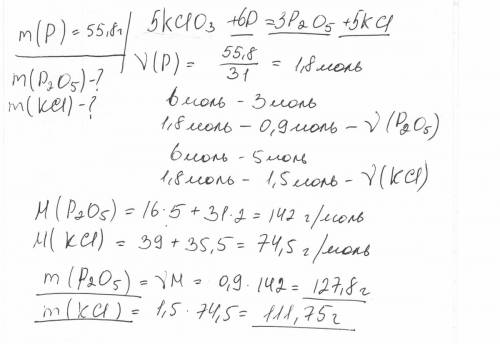 m(P) = 55,8г
m(P₂O₅)-?
m(KCl)-?
5KClO₃ + 6P = 3P₂O₅ + 5KCl
ν(P) = 55,8/31 = 1,8 моль
6 моль - 3 моль
1,8 моль - 0,9 моль - ν(P₂O₅)
6 моль - 5 моль
1,8 моль - 1,5 моль - ν(KCl)
M(P₂O₅) = 16·5 + 31·2 = 142 г/моль
M(KCl) = 39 + 35,5 = 74,5 г/моль
m(P₂O₅) = νM = 0,9·142 = 127,8г
m(KCl) = 1,5·74,5 = 111,75г